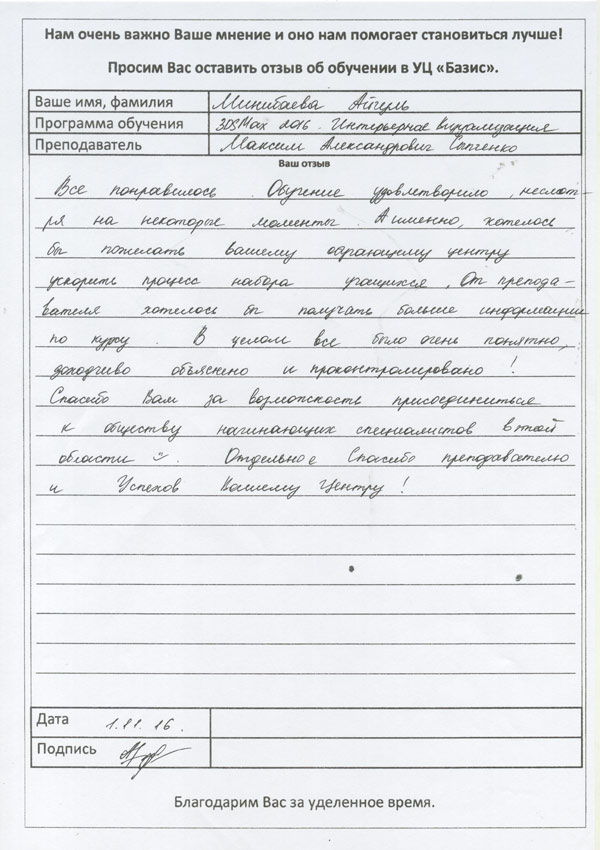 Нам очень важно Ваше мнение и оно нам помогает становиться лучше!
Просим Вас оставить отзыв об обучении в УЦ «Базис».
Ваше имя, фамилия Минибаева Айгуль
Программа обучения 3DSMax 2016. Интерьерная визуализация
Преподаватель Максим Александрович
Ваш отзыв
Все понравилось. Обучение удовлетворило, несмот-
ря на некоторые моменты. А именно, хотелось
бы пожелать вашему обучающему центру
ускорить процесс набора учащихся. От препода-
вателя хотелось бы получать больше информации
по курсу. В целом все было очень понятно,
доходчиво объяснено и проконтролировано!
Спасибо Вам за возможность присоединиться
к обществу начинающих специалистов в этой
области. Отдельное Спасибо преподавателю
и Успехов Вашему Центру!
Дата 1.11.16.
Подпись
Благодарим Вас за уделенное время.